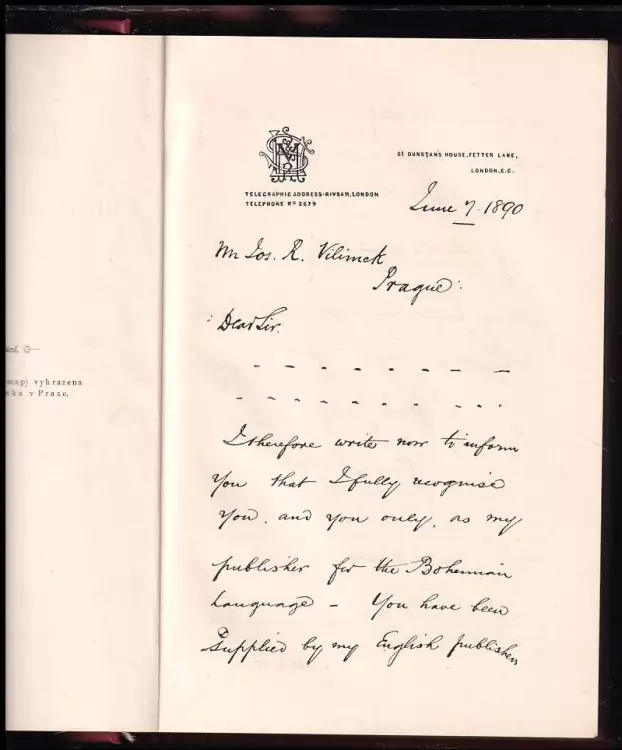 ST DUNSTAN'S HOUSE, FETTER LANE,
LONDON, E.C.
TELEGRAPHIC ADDRESS-RIVSAM, LONDON
TELEPHONE No 2679
June 7. 1890
Mr Jos. R. Vilimek
Prague:
Dear Sir.
- - - - - - - -
- - - - - - - - - -
I therefore write now to inform
you that I fully recognise
you, and you only, as my
publisher for the Bohemian
Language – You have been
Supplied by my English publishers
map) vyhrazena
v Praze.